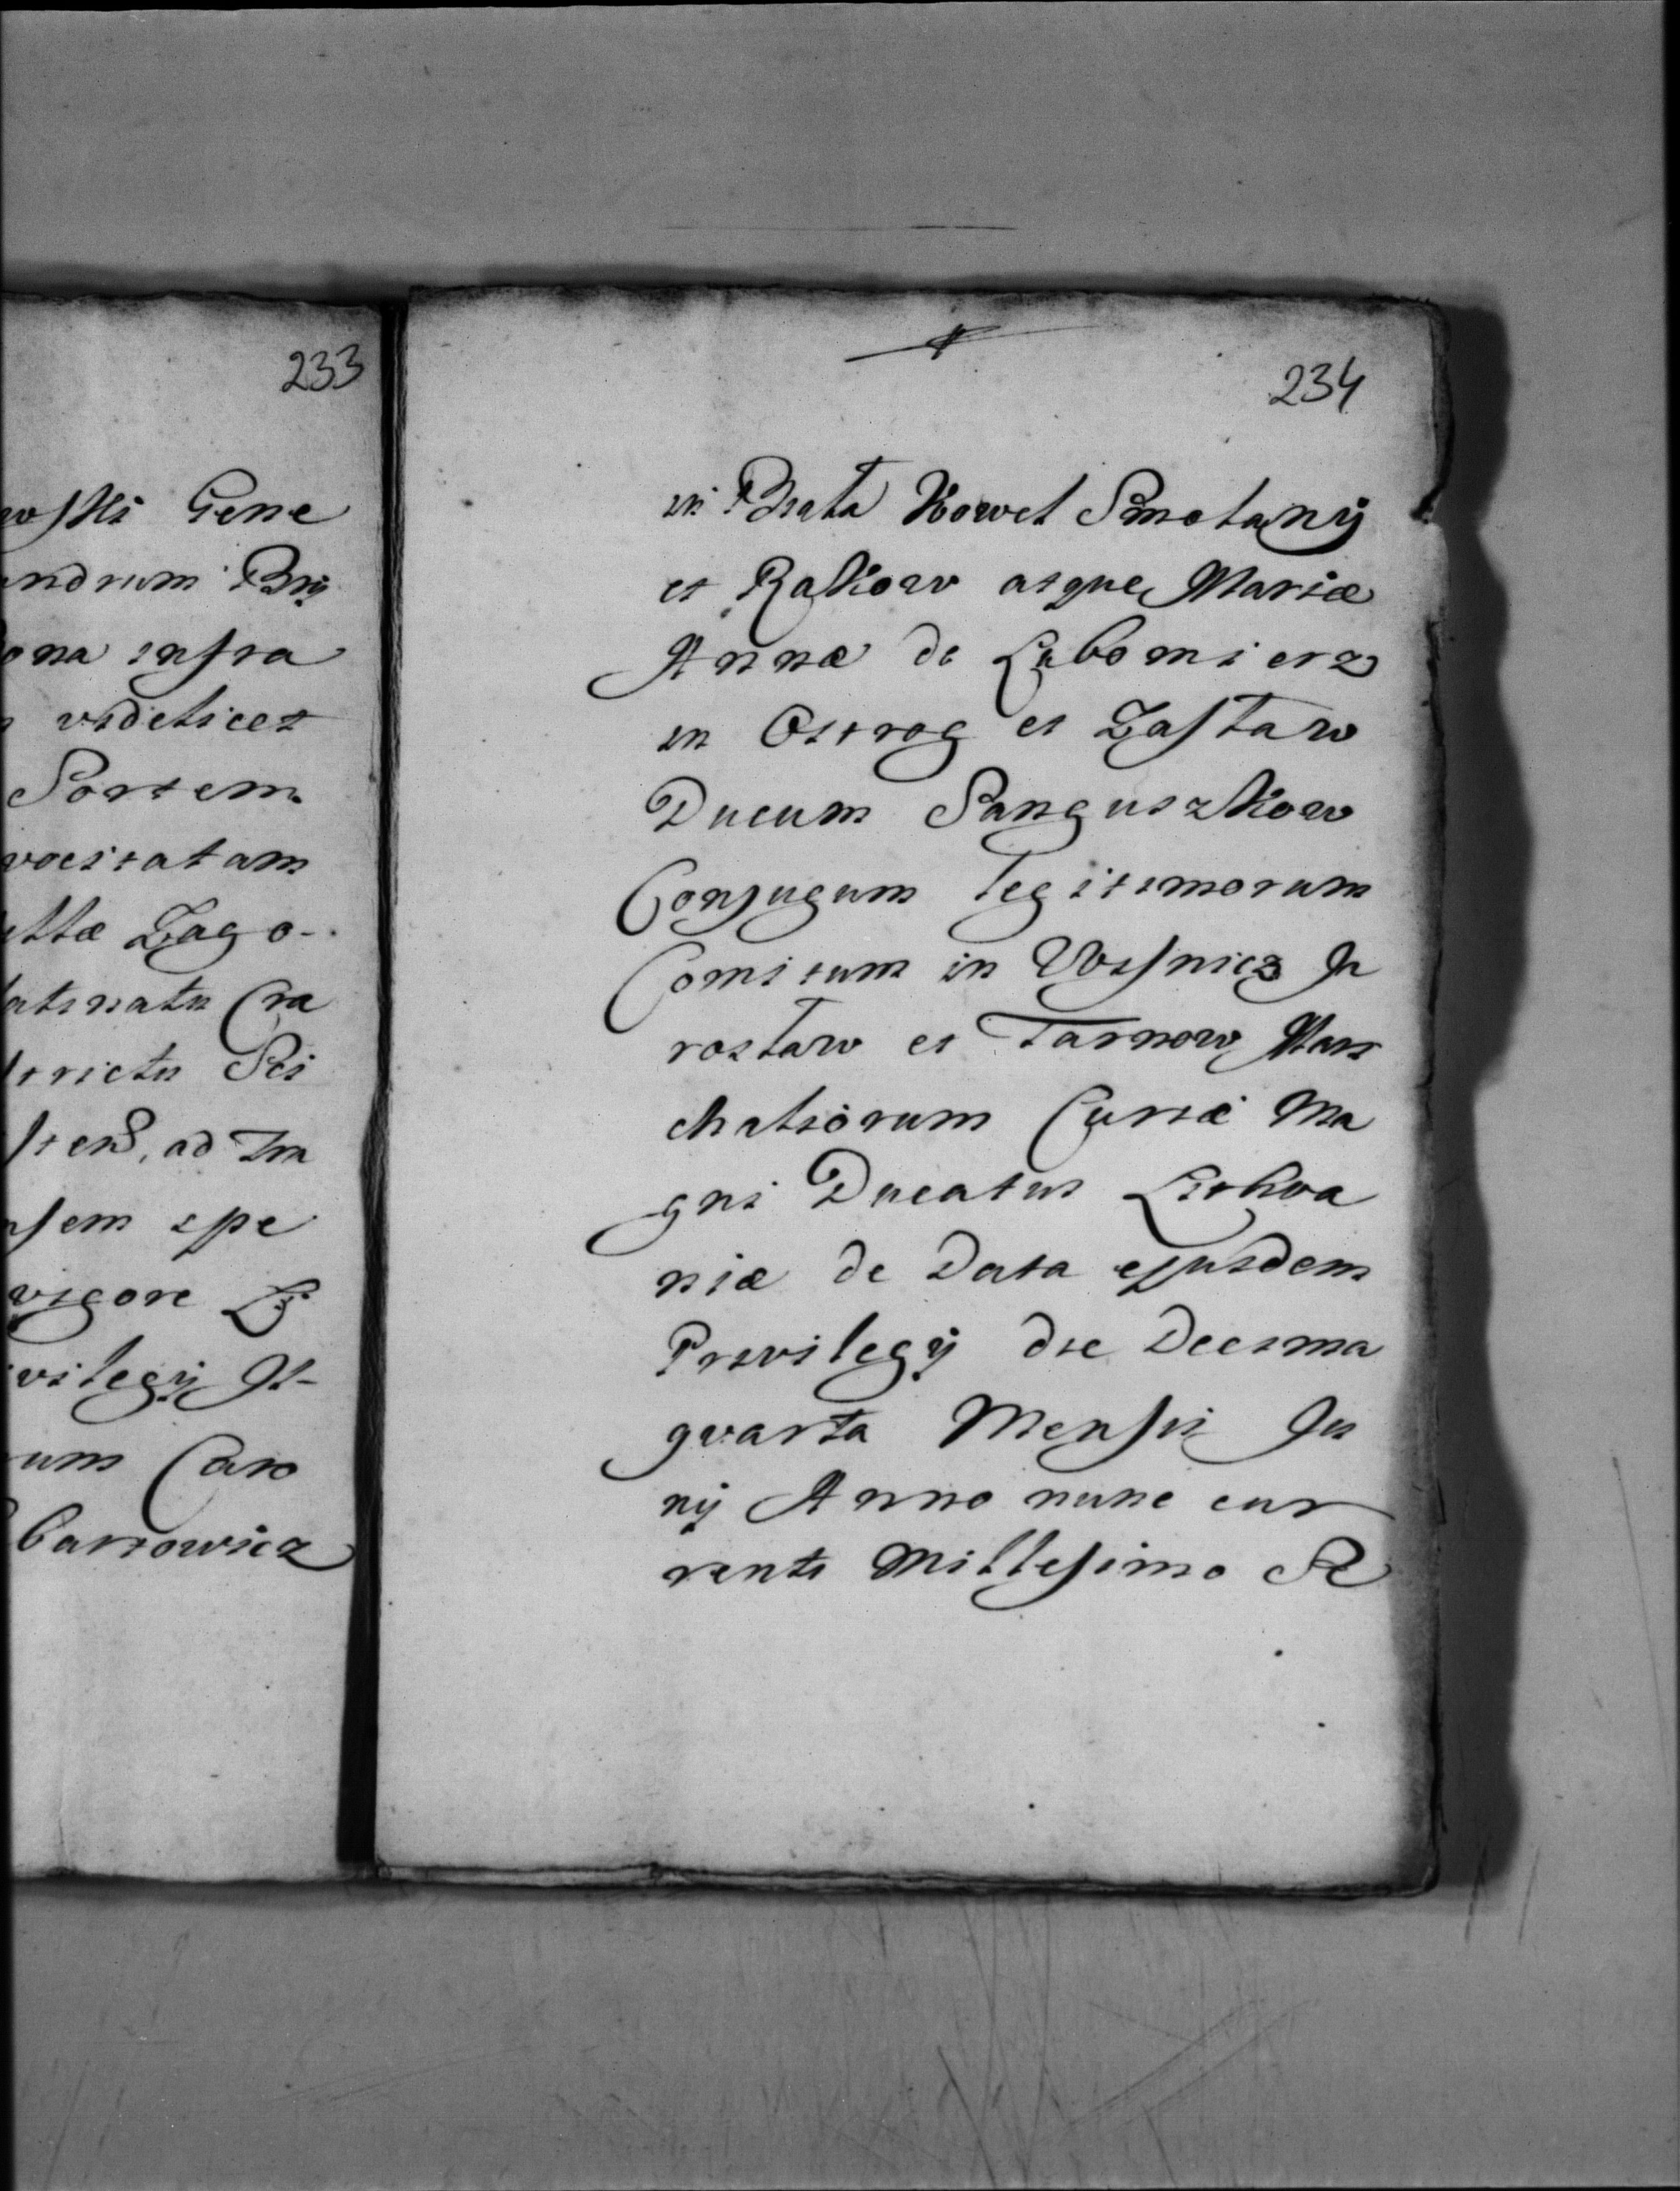 233
Gene
ndrum Brÿ
ona infra
videlicet
Sortem
vocitatam
Zago-
latinatu Cra
strictu Sci
ad Im
spe
vigore
vilegÿ
um Caro
bartowicz
234
in Biała Kowel Smolanÿ
et Rakow atque Mariæ
Annæ de Lubomierz
in Ostrog et Zasław
Ducum Sanguszkow
Conjugum legitimorum
Comitum in Wisnicz Ja
rosław et Tarnow Mars
chaliorum Curiæ Ma
gni Ducatus Lithva
niæ de Data ejusdem
Privilegÿ die Decima
qvarta Mensis Ju
nÿ Anno nunc cur
rente Millesimo Se